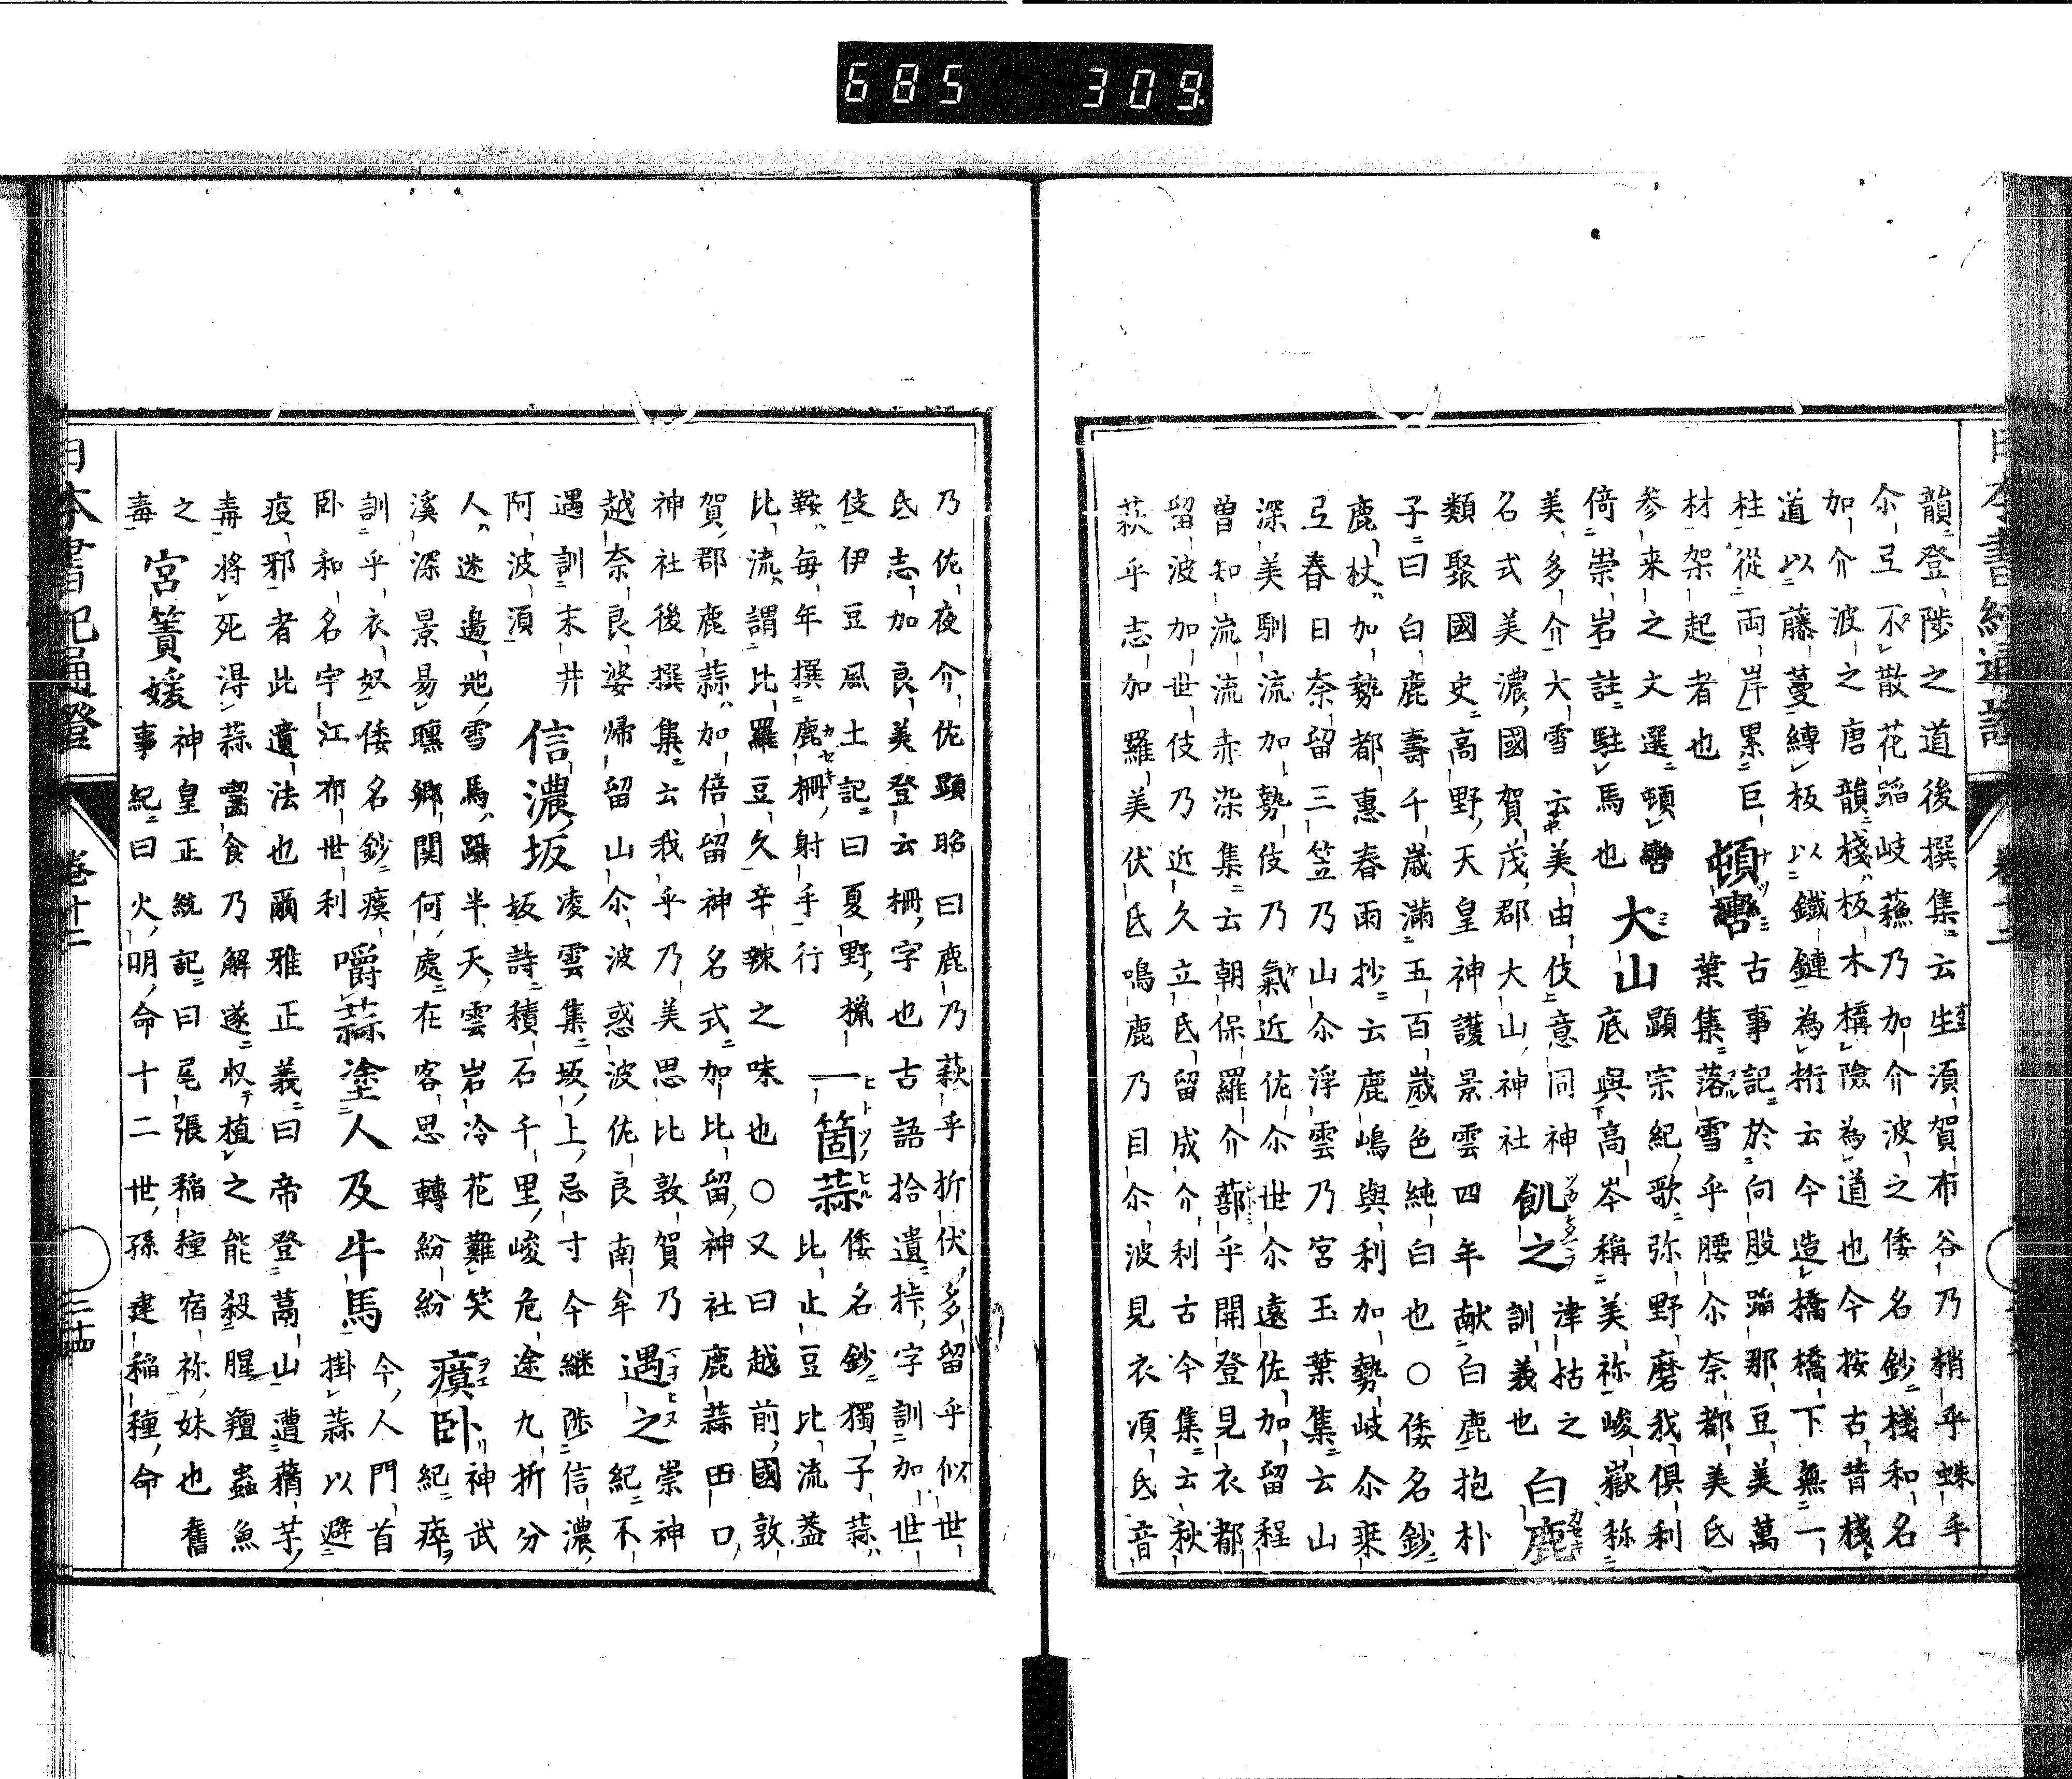 685 309
韻登陟之道後撰集云生湏賀布谷乃梢乎蛛乎
尒弖不散花蹈岐蘓乃加介波之倭名鈔棧和名
加介波之唐韻棧板木構險為道也今按古昔棧
道以藤蔓縛板以鐵鏈為桁云今造橋橋下無一
柱從兩岸累巨
材架起者也
頓轡
古事記於向股蹈那豆美萬
葉集落雪乎腰尒奈都美氐
参来之文選頓轡
倚崇岩註駐馬也
大山
顕宗紀歌弥野磨我俱利
底與高岑稱美祢峻嶽称
美多介大雪云美由伎意同神
名式美濃國賀茂郡大山神社
飢之
津拈之
訓義也
白鹿
類聚國史高野天皇神護景雲四年献白鹿抱朴
子曰白鹿壽千歲滿五百歲色純白也〇倭名鈔
鹿杖加勢都惠春雨抄云鹿嶋與利加勢岐尒乘
弖春日奈留三笠乃山尒浮雲乃宮玉葉集云山
深美馴流加勢伎乃氣近佐尒世尒遠佐加留程
曽知流流赤染集云朝保羅介蔀乎開登見衣都
留波加世伎乃近久立氐留成介利古今集云秋
萩乎志加羅美伏氐鳴鹿乃目尒波見衣湏氐音
乃佐夜介佐顕昭曰鹿乃萩乎折伏多留乎似世
氐志加良美登云柵字也古語拾遺㭙字訓加世
伎伊豆風土記曰夏野獵
鞍毎年撰鹿柵射手行
一箇蒜
倭名鈔獨子蒜
比止豆比流蓋
比流謂比羅豆久辛辣之味也〇又曰越前國敦
賀郡鹿蒜加倍留神名式加比留神社鹿蒜田口
神社後撰集云我乎乃美思比敦賀乃
越奈良婆帰留山尒波惑波佐良南牟
遇之
崇神
紀不
遇訓末井
阿波湏
信濃坂
凌雲集坂上忌寸今継陟信濃
坂詩積石千里峻危途九折分
人迷邉地雪馬躡半天雲岩冷花難笑
溪深景易曛鄉関何處在客思轉紛紛
瘼卧
神武
紀瘁
訓乎衣奴倭名鈔瘼
卧和名字江布世利
嚼蒜塗人及牛馬
今人門首
掛蒜以避
疫邪者此遺法也爾雅正義曰帝登蒚山遭蕕芋
毒将死得蒜嚙食乃解遂収植之能殺腥羶蟲魚
之
毒
宮簀媛
神皇正統記曰尾張稲種宿祢妹也舊
事紀曰火明命十二世孫建稲種命
日本書紀通證
卷十二